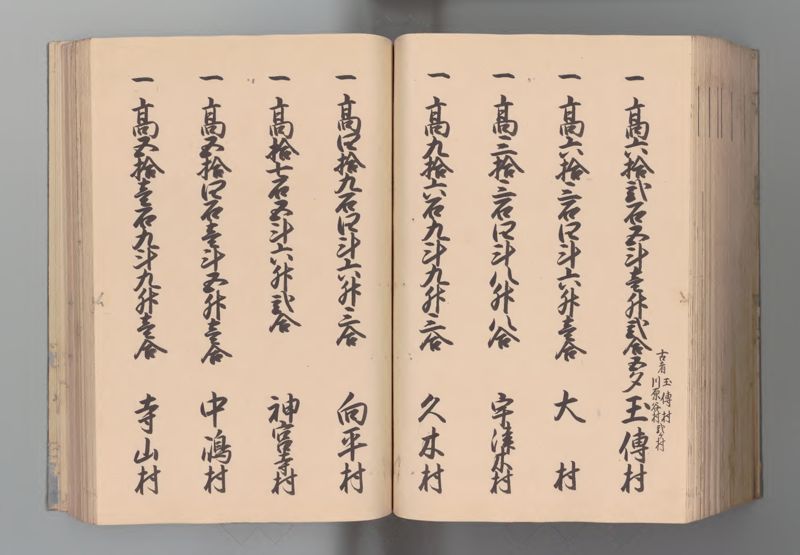 一 高六拾弐石五斗壱升弐合五夕 玉傳村
古者 玉傳村
川原谷村 弐ケ村
一 高六拾三石四斗六升壱合 大村
一 高三拾三石四斗八升八合 宇津木村
一 高九拾六石九斗九升三合 久木村
一 高四拾九石四斗六升三合 向平村
一 高拾七石五斗六升弐合 神宮寺村
一 高五拾四石壱斗五升壱合 中嶋村
一 高五拾壱石九斗九升壱合 寺山村